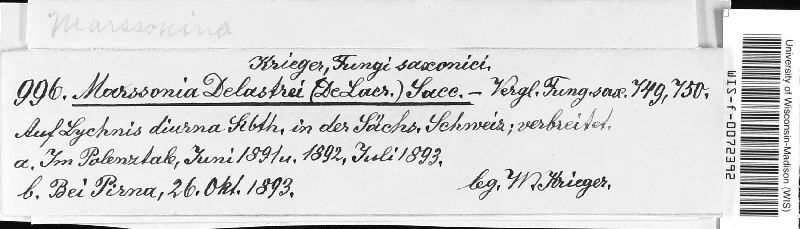 Marssonina
Krieger, Fungi saxonici.
996. Marssonia Delastrei (De Lacr.) Sacc. – Vergl. Fung. sax. 749, 750.
Auf Lychnis diurna Sibth. in der Sächs. Schweiz; verbreitet.
a. Im Polenztale, Juni 1891 u. 1892, Juli 1893.
b. Bei Pirna, 26. Okt. 1893. lg. W. Krieger.
WIS-F-0072392
University of Wisconsin-Madison (WIS)